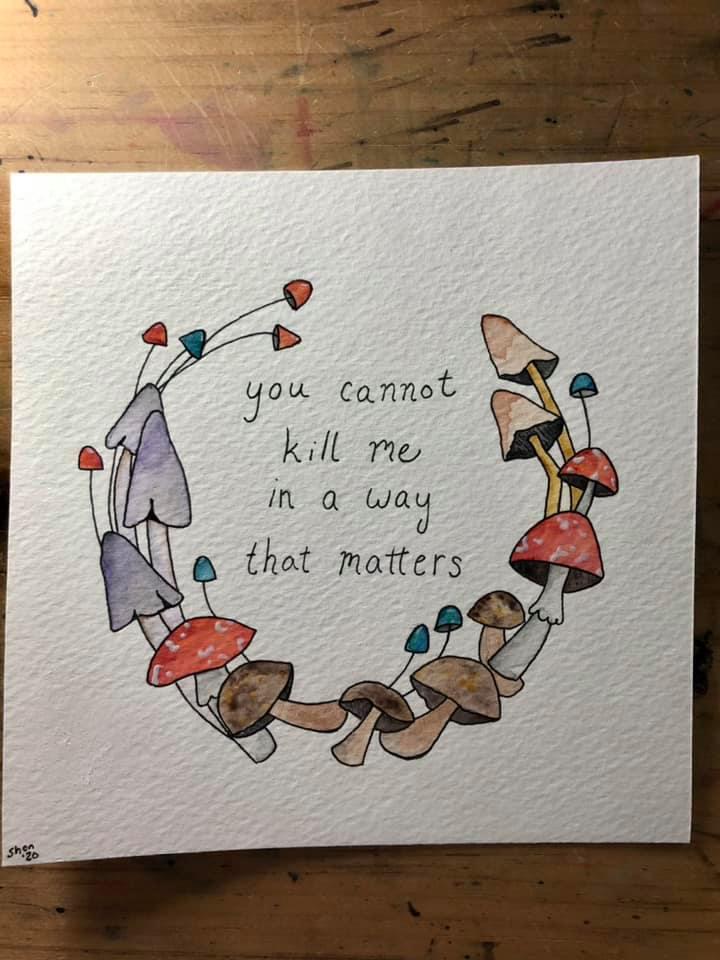 you cannot
kill me
in a way
that matters
shon
'20